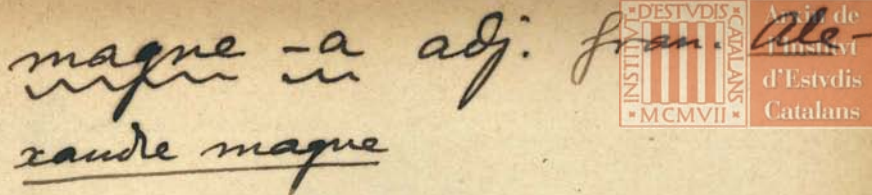 magne -a adj. gran. Ale-
xandre magne
INSTITVT D'ESTVDIS CATALANS
MCMVII
Arxiu de
l'Institvt
d'Estvdis
Catalans